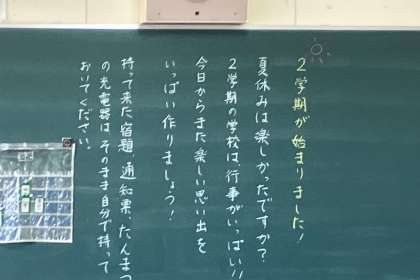 ２学期が始まりました！
夏休みは楽しかったですか？
２学期の学校は、行事がいっぱい!!
今日からまた楽しい思い出を
いっぱい作りましょう！
持って来た宿題、通知票、たんまつ
の充電器は、そのまま自分で持って
おいてください。